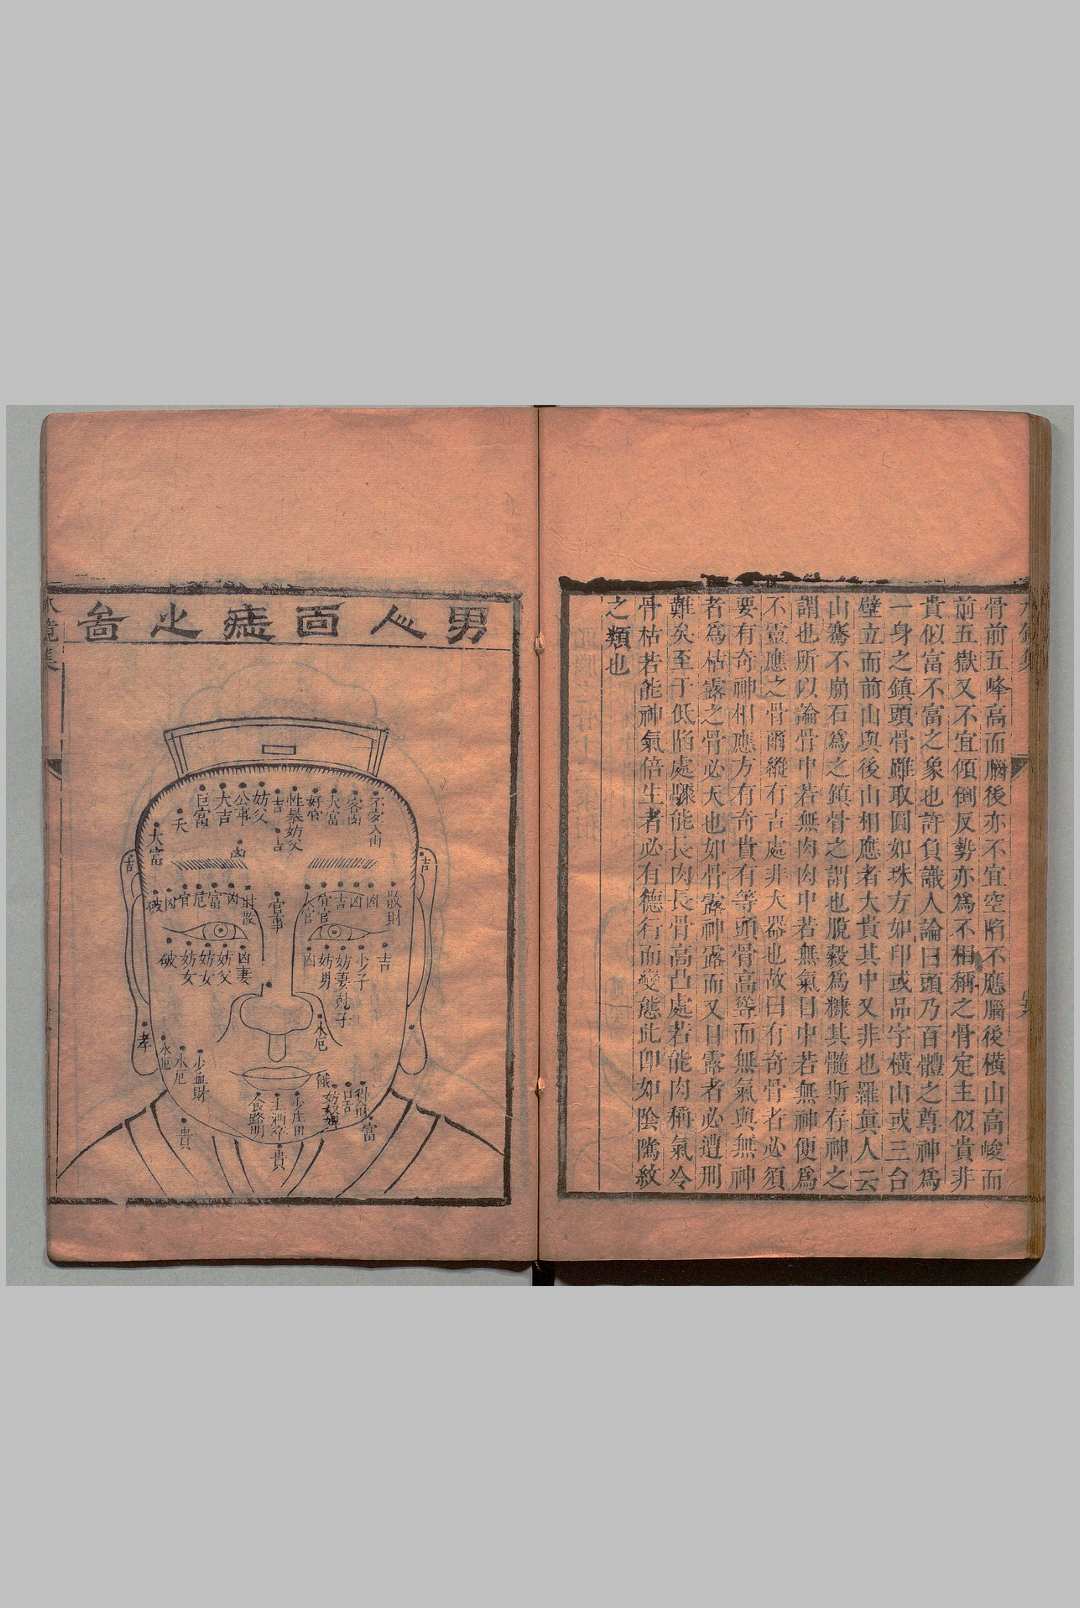 骨前五峰高而腦後亦不宜空陷不應腦後橫山高峻而
前五嶽又不宜傾倒反勢亦為不相稱之骨定主似貴非
貴似富不富之象也許負識人論曰頭乃百體之尊神為
一身之鎮頭骨雖取圓如珠方如印或品字橫山或三台
壁立而前山與後山相應者大貴其中又非也羅真人云
山騫不崩石為之鎮骨之謂也脫穀為糠其髓斯存神之
謂也所以論骨中若無肉肉中若無氣目中若無神便為
不靈應之骨爾縱有吉處非大器也故曰有奇骨者必須
要有奇神相應方有奇貴有等頭骨高聳而無氣與無神
者為枯露之骨必夭也如骨露神露而又目露者必遭刑
難矣至于低陷處驟能長肉長骨高凸處若能肉稱氣冷
骨枯若能神氣倍生者必有德行而變態此卽如陰隲紋
之類也
男人面痣之啚
不安入山
客酒
大富
好官
性暴妨父
吉
吉
妨父
公事
大吉
巨富
夭
大富
凶
吉
吉
散財
凶
凶
吉
官
大官
官事
財散
凶
富
厄
官
凶
破
吉
少子
妨妻
妨男
凶
凶妻
妨父
妨女
妨女
破
孝
水厄
水厄
水厄
少血財
貴
食路明
主酒卒
少庄田
貴
妨奴婢
口舌
富